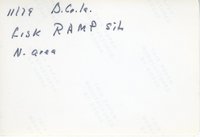 11/79 D.Co.la.
Lisk RAMP Site
N. area